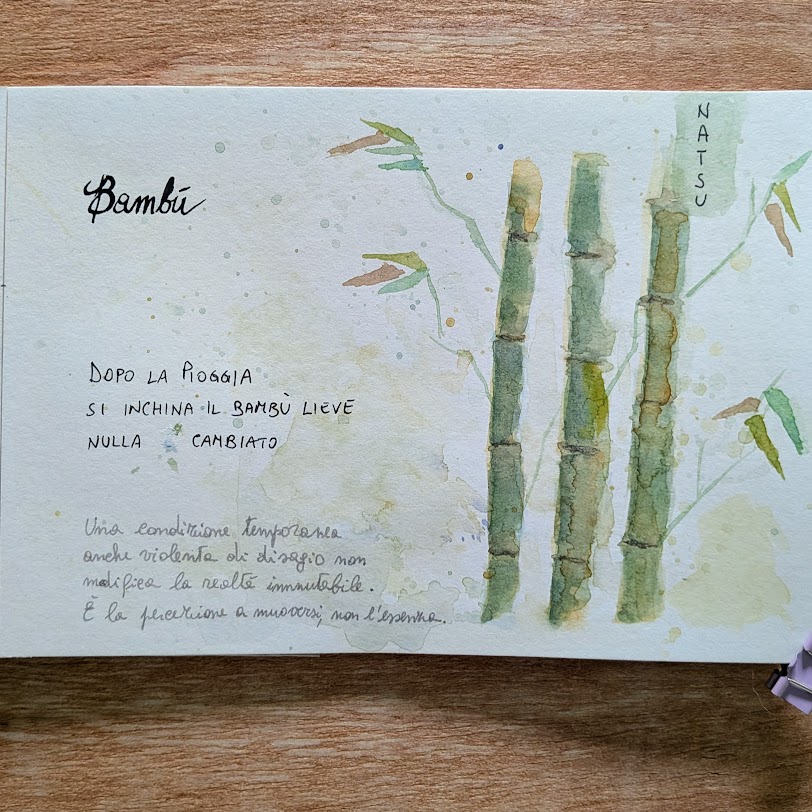 Bambú
NATSU
DOPO LA PIOGGIA
SI INCHINA IL BAMBÙ LIEVE
NULLA È CAMBIATO
Una condizione temporanea
anche violenta di disagio non
modifica la realtà immutabile.
È la percezione a muoversi, non l'essenza.